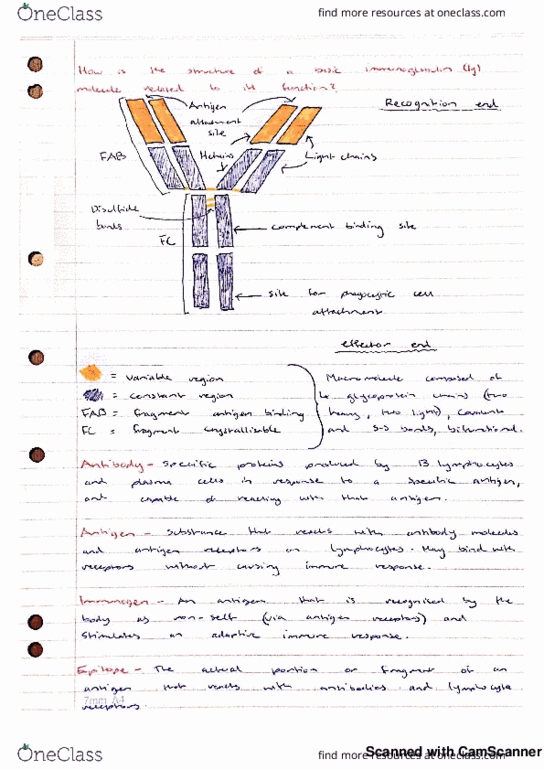 OneClass
find more resources at oneclass.com
How is the structure of a basic immunoglobulin (Ig)
molecule related to its function?
Recognition end
Antigen
attachment
site
FAB
Hchains
Light chains
Disulfide
bonds
FC
complement binding site
site for phagocytic cell
attachment.
effector end
= variable region
= constant region
FAB = fragment antigen binding
FC = fragment crystallizable
Macromolecule composed of
4 glycoprotein chains (two
heavy, two light),
and S-S bonds, bifunctional.
Antibody - Specific proteins produced by B lymphocytes
and plasma cells in response to a specific antigen,
and capable of reacting with that antigen.
Antigen - Substance that reacts with antibody molecules
and antigen receptors on lymphocytes. May bind with
receptors without causing immune response.
Immunogen - An antigen that is recognised by the
body as non-self (via antigen receptors) and
stimulates an adaptive immune response.
Epitope - The actual portion or fragment of an
antigen that reacts with antibodies and lymphocyte
receptors.
7mm A4
OneClass
find more resources at oneclass.com
Scanned with CamScanner